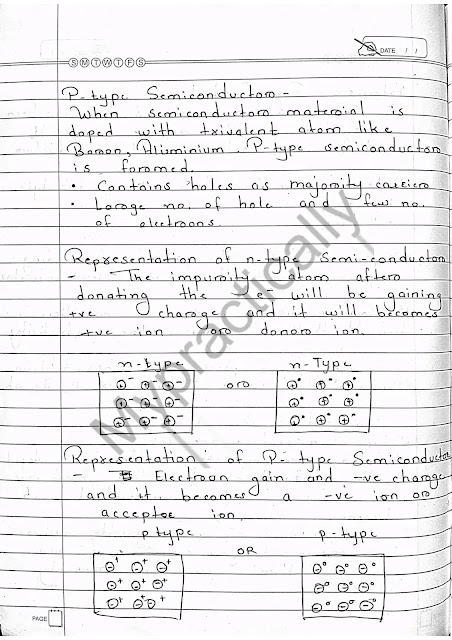 DATE / /
S M T W T F S
P-type Semiconductors -
When semiconductors material is
doped with trivalent atom like
Boron, Aluminium. P-type semiconductors
is formed.
• Contains holes as majority carriers
• Large no. of hole and few no.
of electrons.
Representation of n-type Semi-conductor
- The impurity atom after
donating the e- will be gaining
+ve charge and it will becomes
+ve ion or donor ion.
n-type n-Type
⊕- ⊕- ⊕- or ⊕• ⊕• ⊕•
⊕- ⊕- ⊕- ⊕• ⊕• ⊕•
⊕- ⊕- ⊕- ⊕• ⊕• ⊕•
Representation of P-type Semiconductor
- Electron gain and -ve charge
and it becomes a -ve ion or
acceptor ion.
p type p-type
OR
⊖+ ⊖+ ⊖+ ⊖° ⊖° ⊖°
⊖+ ⊖+ ⊖+ ⊖° ⊖° ⊖°
⊖+ ⊖+ ⊖+ ⊖° ⊖° ⊖°
PAGE
Mypractically